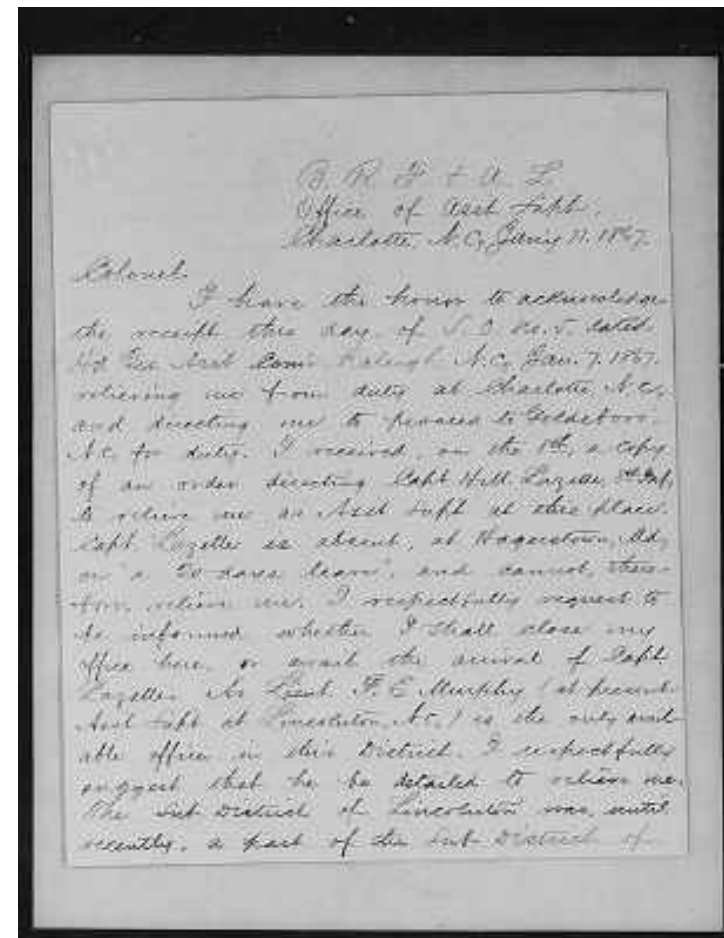 B. R. F. & A. L.
Office of Asst Supt.
Charlotte, N.C., Jan'y 11. 1867.
Colonel.
I have the honor to acknowledge
the receipt this day, of S. O. No. 5. dated
Hd Qrs Asst Com'r Raleigh N.C., Jan. 7. 1867.
relieving me from duty at Charlotte, N.C.,
and directing me to proceed to Goldsboro'
N.C. for duty. I received, on the 8th, a copy
of an order directing Capt H.M. Lazelle, 8th Inf,
to relieve me as Asst Supt at this place.
Capt. Lazelle is absent, at Hagerstown, Md,
on "a 20 days leave", and cannot, there-
fore, relieve me. I respectfully request to
be informed whether I shall close my
office here, or await the arrival of Capt
Lazelle. As Lieut. F. E. Murphy (at present
Asst Supt at Lincolnton, N.C.) is the only avail-
able officer in this District, I respectfully
suggest that he be detailed to relieve me.
The Sub District of Lincolnton was, until
recently, a part of the Sub District of